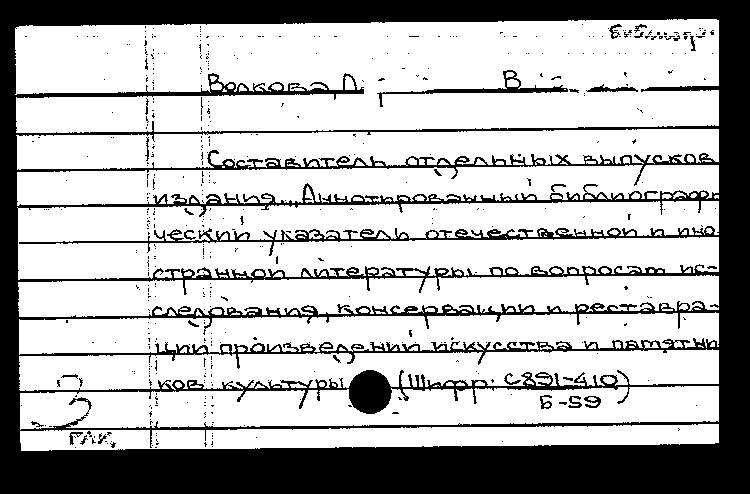 библиогр.
Волкова, Л. В
Составитель отдельных выпусков
издания „Аннотированный библиографи
ческий указатель отечественной и ино
странной литературы по вопросам ис-
следования, консервации и реставра-
ции произведений искусства и памятни
ков культуры (Шифр: С891-410)
Б-59
3
ГЛК.